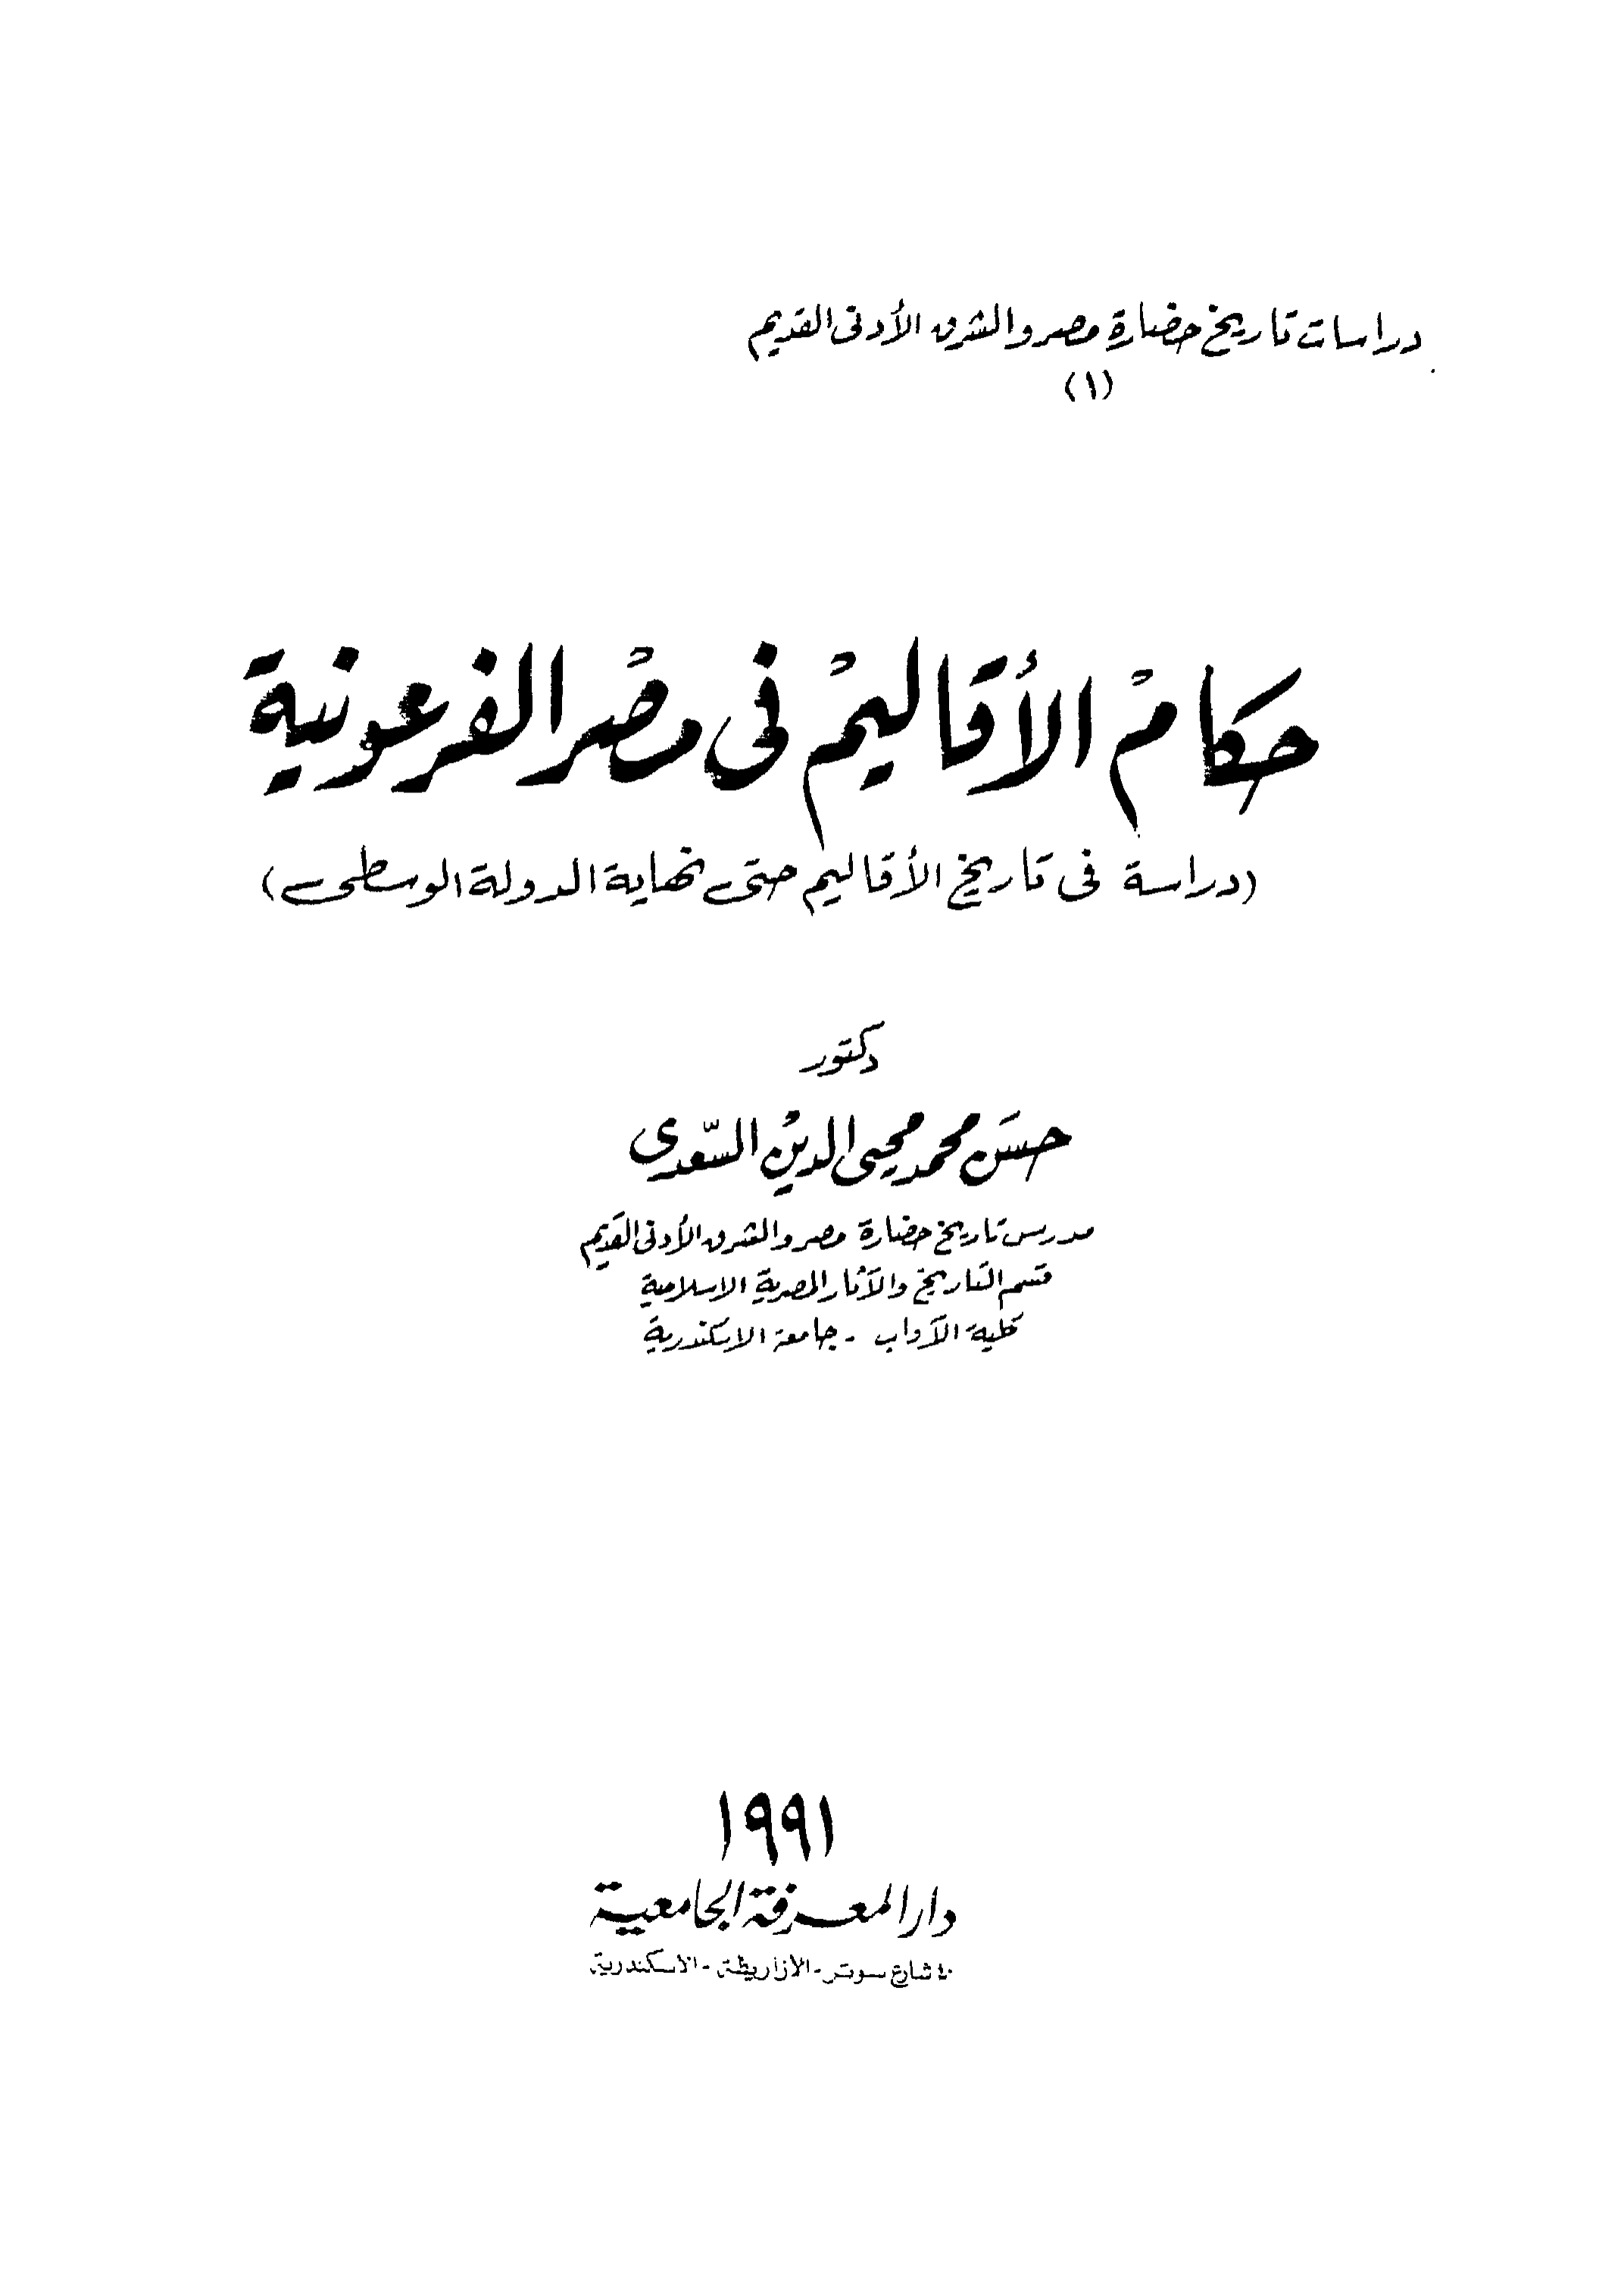 دراسات تاريخ حضارة مصر والشرق الأدنى القديم
(١)
حكام الأقاليم فى مصر الفرعونية
(دراسة فى تاريخ الأقاليم حتى نهاية الدولة الوسطى)
دكتور
حسن محمد محيى الدين السّعدى
مدرس تاريخ حضارة مصر والشرق الأدنى القديم
قسم التاريخ والآثار المصرية الاسلامية
كلية الآداب - جامعة الاسكندرية
١٩٩١
دار المعرفة الجامعية
٤٠ شارع سوتر - الأزاريطة - الاسكندرية